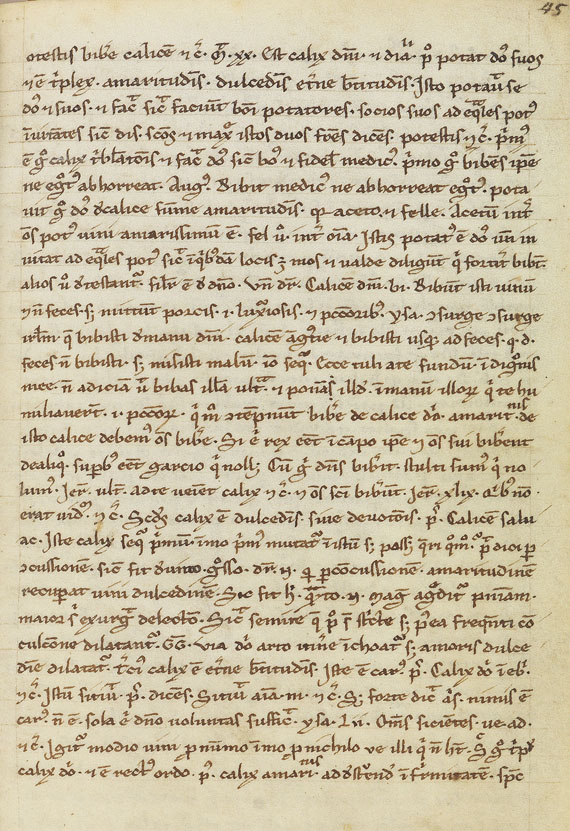 45
otestis bibe calicē ⁊ c̄. M̄. xx. Est calix dn̄i. ⁊ diā. p̄ potat do᷑ suos
⁊ ē t͛plex. amaritudīs. dulcedīs et͛ne b̄titudīs. Isto potaū se
do᷑ ⁊ suos. ⁊ fac͛ sic͛ faciūt boni potatores. socios suos ad eq̄les pot᷑
īuitātes sic̄ dis. scōs ⁊ max͛ istos duos fr̄es dicēs. potestis ⁊ c̄. p̄m᷑
ē g͛ calix t͛blatōnis ⁊ fac͛ do᷑ sic̄ bo᷑ ⁊ fidel̄ medic᷑. p͛mo g͛ bibēs ip̄e
ne eg᷑t᷑ abhorreat. Aug᷑. Bibit medic᷑ ne abhorreat eg᷑t᷑. pota
uit g͛ do᷑ de calice sūme amaritudīs. aceto ⁊ felle. Acetū int͛
ōs pot᷑ uini amarissimū ē. fel ū. int͛ oīa. Istis potat᷑ ē do᷑ un̄ in
uitat ad eq̄les pot᷑ sic͛ ī q͛bdā locis ⁊ mos ⁊ ualde diligūt q͛ fortit͛ bibt͛.
alios ū detestant͛. sil͛r ē de dn̄o. Vn̄ dr̄. Calicē dn̄i. bi. Bibūt isti uinū
⁊ n̄ feces. s; mittūt porcis. i. luxͥosis. ⁊ pccōrib᷑. ysa. ↄsurge ↄsurge
irl̄m q̄ bibisti de manu dn̄i. calicē ⁊ bibisti usq; ad feces. q. d.
feces n̄ bibisti. s; misisti malū. iō seq͛. Ecce tuli a te fundū ī dig͛nis
mee. n̄ adiciā ū bibas illā ult͛. ⁊ ponā illd᷑. ī manū illoꝝ q͛ te hu
miliauert̄. i. pccōꝝ. q͛ m᷑ ↄtēpnūt bibe de calice do᷑. amaritnīs. de
isto calice debem᷑ ōs bibe. Si ē rex eēt ī cāpo ip̄e ⁊ ōs sui bibent
de aliq᷑. supb᷑ eēt garcio q͛ noll;. Cū g͛ dn̄s bibit. stulti sum᷑ q͛ no
lum᷑. Ier͛. ult͛. ad te ueiet calix ⁊ c̄. ⁊ ōs sc̄i bibūt. Ier͛. xlix. q᷑b᷑ no
erat iud᷑. ⁊ c̄. Scd᷑s calix ē dulcedīs. siue deuotōnis. p͛. Calicē salu
ac. Iste calix seq͛ p͛mū. īmo p͛m᷑ mutat᷑ ī istū s; poss; q͛ri q᷑m᷑. p͛ dici p
ↄcussionē. sic̄ fit de unto g͛sso. dr̄. II. q᷑ p ↄcussionē. amaritudinē
recup͛at uini dulcedinē. Sic fit h᷑ q᷑to. II. mag᷑ pn̄iam.
maior s̄ exurg͛ delectō. Sic͛ semite q̄ p᷑ s̄ st͛cte s; p᷑ea freq̄nti cō
culcōne dilatant͛. GG. Via do᷑ arto itīne īchoat͛ s; amoris dulce
dīe dilatat͛. t͛ci᷑ calix ē et͛ne b̄titudīs. Iste ē car᷑. p͛. Calix do᷑ īeb͛.
⁊ c̄. Istū sitiūt. p͛. dicēs. Sitiūt aīā. m. ⁊ c̄. S; forte dic͛ al᷑s. nimis ē
car᷑. n̄ ē. sola ē dn̄o uoluntas suffic͛. ysa. Ln. Oms̄ sicietes. ue. ad.
⁊ c̄. Igit͛ modio uini p numo īmo p nichilo ue illi q͛ n̄ h̄t. Sͥ g͛ t͛p᷑
calix do᷑. ⁊ ē rect᷑ ordo. p͛. calix amarinīs. ad ī firmitatē. spc̄